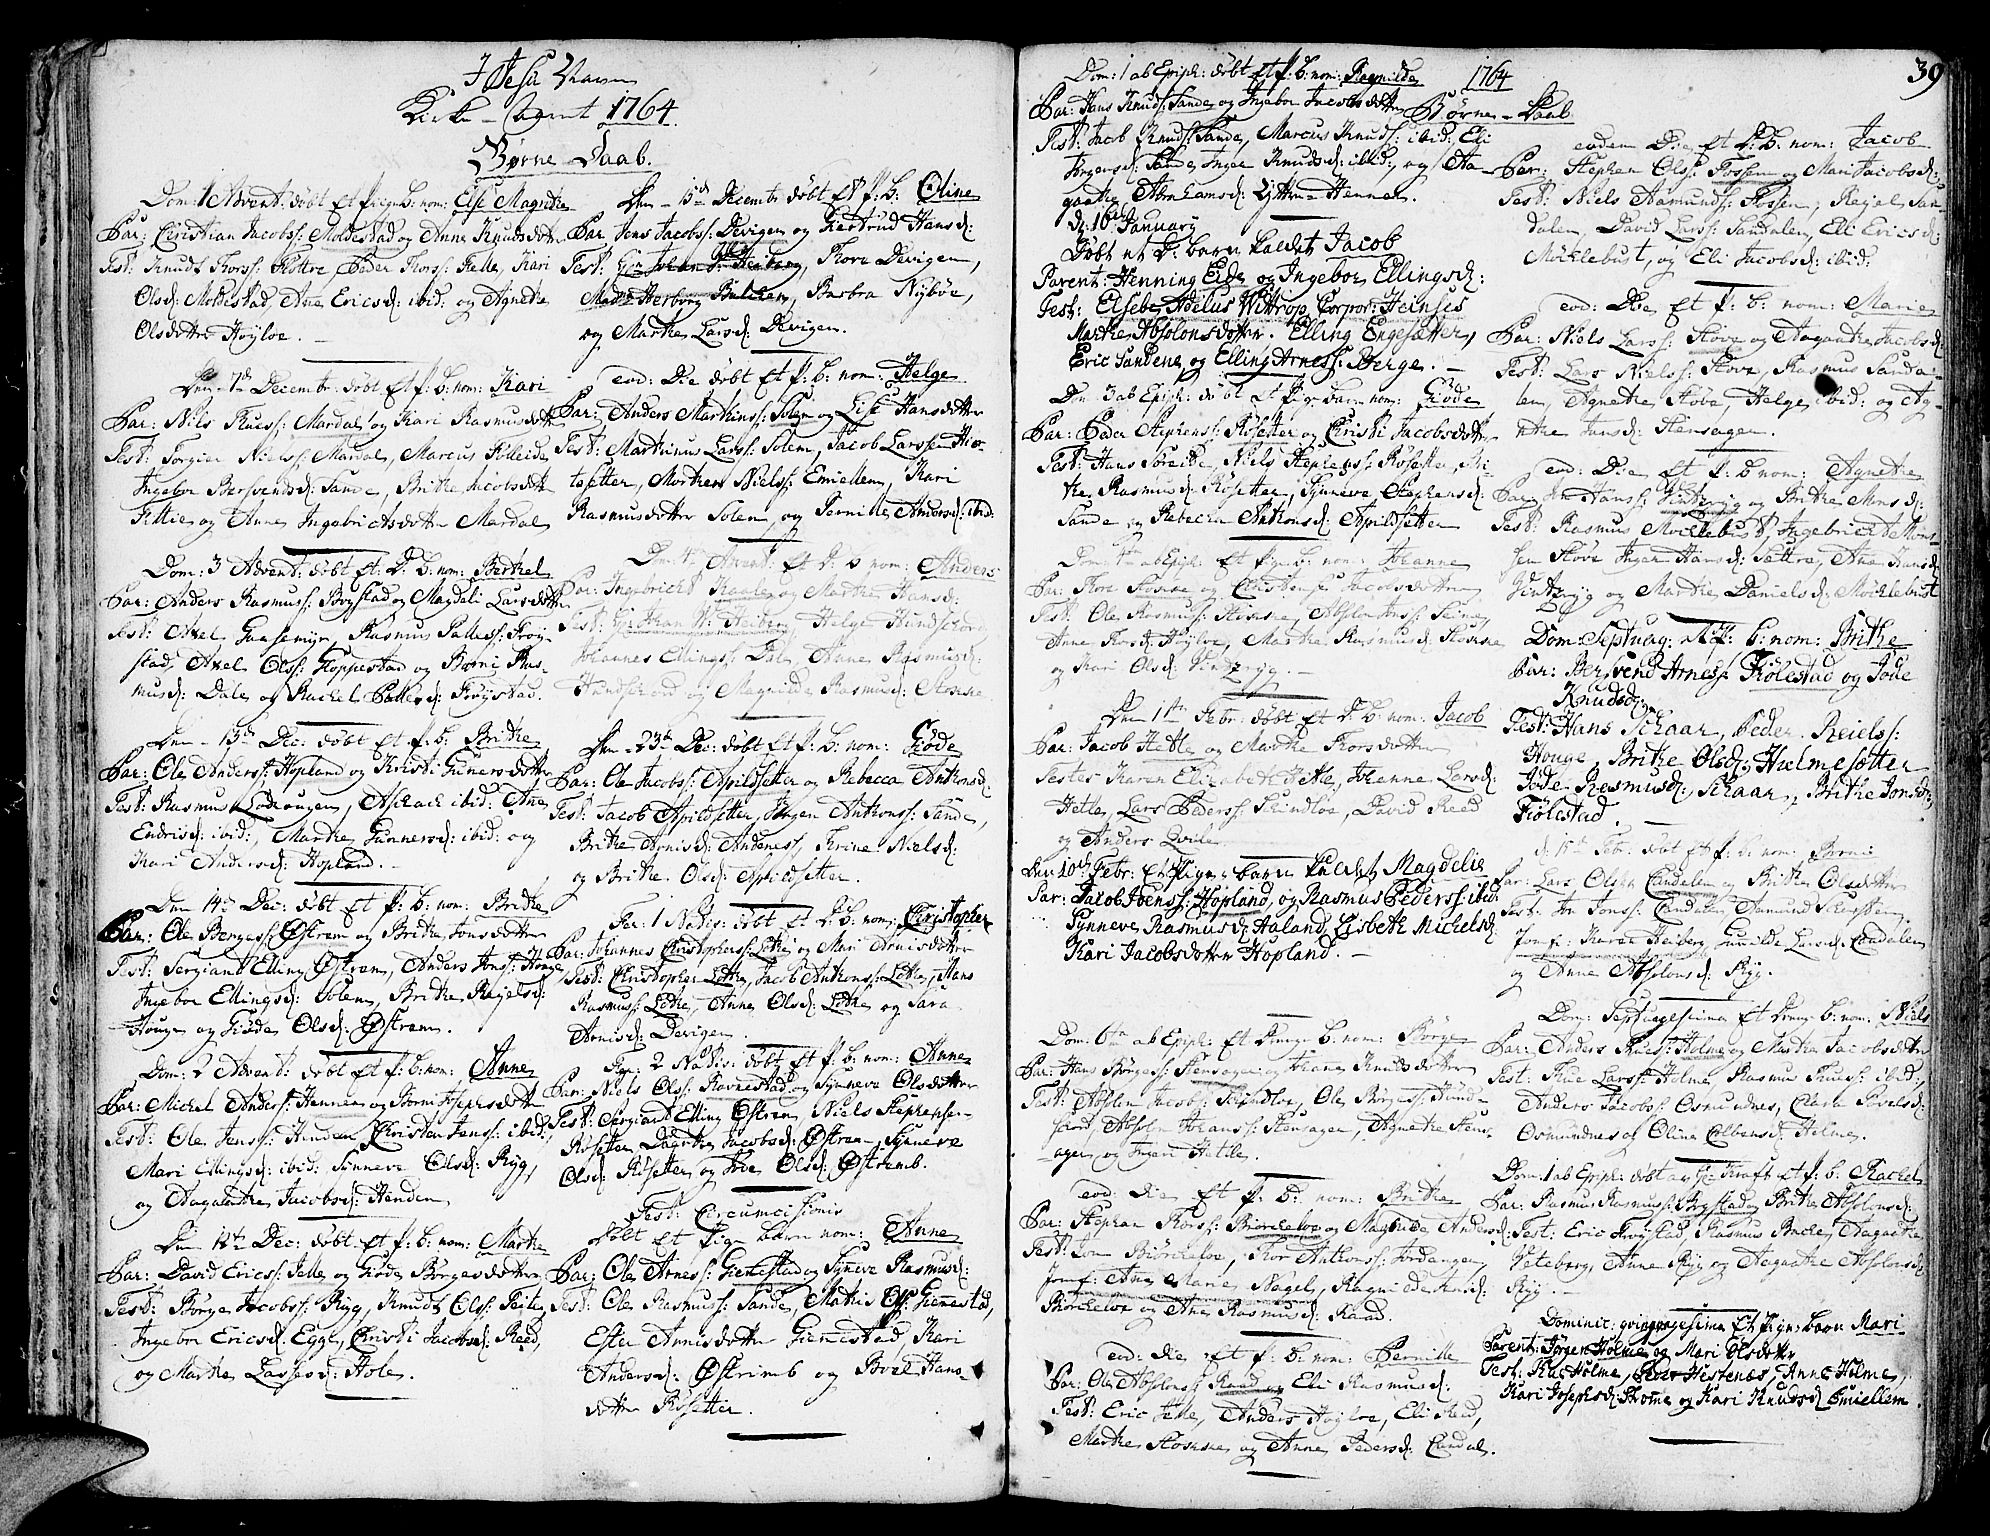 I Jesu Navn
Kirke-Aaret 1764.
Børne-Daab.
Dom: 1 Advent: døbt et pige b: nom: Else Magrethe
Par: Christian Jacobs: Moldestad og Anne Knudsdotter
Test: Knud Thors: Føttre, Peder Thors: Felle, Kari
Olsd: Moldestad Ane Ericsd: ibid: og Agnethe
Olsdotter Høyloe.
Den 7de Decembr: døbt et p: b: nom: Kari
Par: Nils Rues: Mardal og Kari Rasmusdotter
Test: Torgier Niels: Mardal, Marcus
Ingebor Bersvendsd: Sande, Brithe Jacobsdotter
og Anne Ingebrictsdotter Mardal
Dom: 3 Advent: døbt et D: b: nom: Berthel
Par: Anders Rasmuss: Bogstad og Magdeli Larsdotter
Test: Axel Gaasemyr, Rasmus Palles: Frøy-
stad, Axel Ols: Hoppestad og Børni Ras-
musd: Dale og Rachel Pallesd: Frøystad.
Den 13de Dec: døbt et p: b: Brithe
Par: Ole Anders: Hopland og Kristi Gunersdotter
Test: Rasmus Lodøugen, Aschach ibid: Ane
Endrisd: ibid:, Marthe Gunnersd: ibid: og
Kari Andersd: Hopland.
Den 14de Dec: døbt et p: b: nom: Brithe
Par: Ole Børges: Østrem og Brithe Jonsdotter
Test: Sergiant Elling Østrem, Anders Jons: Houge
Ingebor Ellingsd: Solem, Brithe Reielsd:
Houge og Giøde Olsd: Østrem.
Dom: 2 Advent: døbt et p: b: nom: Anne
Par: Michel Anders: Hennen og Børni Josephsdotter
Test: Ole Jens: Henden Christen Jens: ibid:,
Mari Ellingsd: ibid: Synneve Olsd: Ryg,
og Aagaathe Jacobsd: Henden
Den 18de Dec: døbt et p: b: nom: Marthe
Par: David Erics: Felle og Giøde Børgesdotter
Test: Børge Jacobs: Ryg, Knud Ols: Feite,
Ingebor Ericsd: Egge, Christi Jacobsd: Reed,
og Marthe Lassesd: Hole.
Den 15de Decembr døbt et p: b: Oline
Par: Jens Jacobs: Devigen og Giertrud Hansd:
Test: Heiberg, Thore Devigen,
Madm Herborg Balchen, Barbra Nybøe,
og Marthe Larsd: Devigen.
eod: Die døbt et p: b: nom: Helge
Par: Anders Marthins: Solem og Lise Hansdotter
Test: Marthinus Lars: Solem, Jacob Lars: Hiø-
tsetter, Morthen Niels: Emiellem, Kari
Rasmusdotter Solem, og Pernille Andersd: ibid:
Dom: 4de Advent: et D: b: nom: Anders
Par: Ingebrict Raalen og Marthe Hansd:
Test: Heiberg Helge Hundskord
Johannes Ellings: Dale, Anne Rasmusd:
Hundskord og Magnilde Rasmusd:
Den 23de Dec: døbt et p: b: nom: Giøde
Par: Ole Jacobs: Apildsetter og Rebecca Anthonsd:
Test: Jacob Apildsetter, Jørgen Anthons: Sande,
Brithe Arnisd: Andenes, Trine Nielsd:
og Brithe Olsd: Apildsetter.
Fer: 1 Natis: døbt et D: b: nom: Christopher
Par: Johannes Christophers: Lothe og Mari Arnisdotter
Test: Christopher Lothe, Jacob Anthons: Lothe, Hans
Rasmus: Lothe, Anne Olsd: Lothe og Sara
Arnisd: Devigen
Fer: 2 Natis: døbt et p: b: nom: Anne
Par: Niels Ols: Ravnestad og Synneve Olsdotter
Test: Sergiant Elling Østrem, Niels Stephens:
Røsetter, Dorthe Jacobsd: Østrem, Synneve
Olsd: Røsetter og Olsd: Østremb.
Fest: Circumcisionis
Døbt et Pige barn nom: Anne
Par: Ole Arnes: Gienestad og Syneve Rasmusd:
Test: Ole Rasmus: Sande, Mathis Ols: Gienestad,
Esther Arnisdotter Gienestad, Kari
Andersd: Østrimb og Boel Hans
dotter Røsetter.
Dom: 1 ab Epiph: døbt et p: b: nom: Ragnilde
Par: Hans Knuds: Sande og Ingebor Jacobsdotter
Test: Jacob Knuds: Sande, Marcus Knuds: ibid: Eli
Jørgensd: Sande Inger Knudsd: ibid:, og Aa-
gaathe Abrahamsd: Hennen.
d: 16de January
Døbt et D: barn kaldet Jacob
Parent: Henning Eide og Ingebor Ellingsd:
Test: Elsebe Adelus Wittrop Corpor: Heinses
Marthe Absolonsdotter. Elling Engesætter,
Eric Sandene og Elling Arness: Berge.
Dn: 3 ab Epiph: døbt et pige barn nom: Giøde
Par: Peder Stephens: Røsetter og Christi Jacobsdotter
Test: Hans Soreide, Niels Stephens: Røsetter, Bri-
the Rasmusd: Røsetter, Synneve Stephensd:
Sande og Rebecca Anthonsd: Apildsetter
Dom: 4de ab Epiph: et pige b: nom: Johanne
Par: Thore og Christense Jacobsdotter
Test: Ole Rasmus: Absolon Jons: Seime,
Anne Thorsd: Høyloe, Marthe Rasmusd:
og Kari Olsd:
Den 1te Febr: døbt et D: b: nom: Jacob
Par: Jacob Hetle og Marthe Thorsdotter
Testes Karen Elizabeth Hetle, Johanne Larsd:
Hetle, Lars Peders: Skindløe, David Reed
og Anders Qvile
Den 10de Febr: et Pige-barn kaldet Magdelie
Par: Jacob Joens: Hopland, og Rasmus Peders: ibid:
Synneve Rasmusd: Haland, Lisbeth Michelsd:
Kari Jacobsdotter Hopland.
Dom: 6te ab Epiph: et Drenge b: nom: Børge
Par: Hans Børges: Stensagen og Knudsdotter
Test: Absolon Jacobs: Skindloe, Ole Børges:
Absoln Johans: Stensagen, Agnethe Stens-
agen og Inger Hetle.
eod: die et p: b: nom: Brithe
Par: Stephan Thors: Biørcheloe og Magnilde Andersd:
Test: Jon Biørcheloe, Thor Anthons: Jordangen
Jomf: Ane Marie Nagel, Ragnilde
Biørcheloe og Ane Rasmusd: Raad.
eod: die et p: b: nom: Pernille
Par: Ole Absolons: Raad og Eli Rasmusd:
Test: Eric Felle, Anders Høyloe, Eli Reed,
Marthe og Anne Pedersd: Candal.
1764
Børne-Daab.
39
eodem Die et D: b: nom: Jacob
Par: Stephen Ols: Fossem og Mari Jacobsd:
Test: Niels Aamunds: Fossem, Reiel San-
dalen, David Lars: Sandalen, Eli Ericsd:
Mycklebust, og Eli Jacobsd: ibid:
eod: Die et p: b: nom: Marie
Par: Niels Lars: Støve og Aagaathe Jacobsd:
Test: Lars Niels: Støve, Rasmus Sanda-
len, Agnethe Støve, Helge ibid: og Ag-
nethe Jansd: Stensagen.
eod: Die et p: b: nom: Agnethe
Par: Jon Hans: og Brithe Monsd:
Test: Rasmus Mycklebust, Ingebrict Mons-
sen Støve Inger Hansd: Sættre, Ane Hansd:
og Marthe Danielsd: Mycklebust
Dom: Septuag: b: nom: Brithe
Par: Bersvend Arness: Fiølestad og Jøde
Knudsd:
Test: Hans Schaar, Peder Reiels:
Houge, Brithe Olsd: Hielmesætter
Jøde Rasmusd: Schaar, Brithe Jonsd:
Fiølestad.
d: 15de Febr: døbt et p: b: nom: Børni
Par: Lars Olsen Candalen og Brithe Olsdotter
Test: Jon Jons: Candalen, Aamund
Jomf: Karen Heiberg, Gunilde Larsd: Candalen
og Anne Absolonsd: Ryg.
Dom: Septuagesima et Dreng b: nom: Niels
Par: Anders Rues: Holme og Marthe Jacobsdotter
Test: Rue Lars: Holme, Rasmus Rues: ibid:,
Anders Jacobs: Osmundnes, Clara Povelsd:
Osmundnes og Olina Colbensd: Holme.
Dom: 1 ab Epiph: døbt av Hr: Kraft et p: b: Rachel
Par: Rasmus Rasmus: Bogstad og Brithe Absolonsd:
Test: Eric Frøystad, Rasmus Bache, Aagaathe
Veteberg, Anne Ryg og Aagaathe Absolonsd:
Ryg.
Dominic: qvinqvagesima et Pige-barn Mari
Parent: Jørgen Holme og Mari Olsdotter
Test: Rue Holme, Peder Hestenes, Anne Holme,
Kari Josephsd: Strøme og Kari Knudsd: Emiellem.